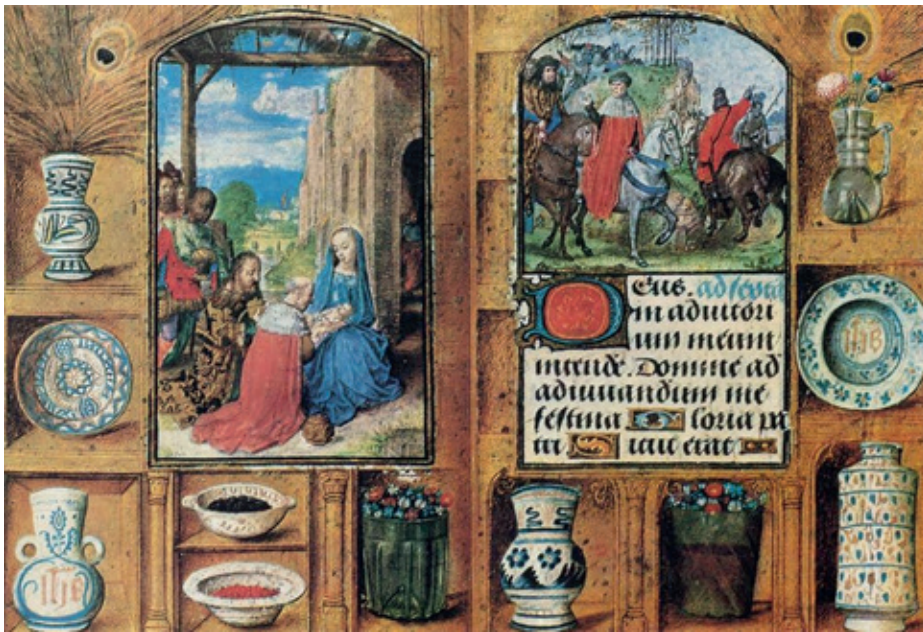 ihs
Deus. ad sexta
in adiutori
um meum
intende. Domine ad
adiuuandum me
festina Gloria pa
tri Sicut erat
ihs